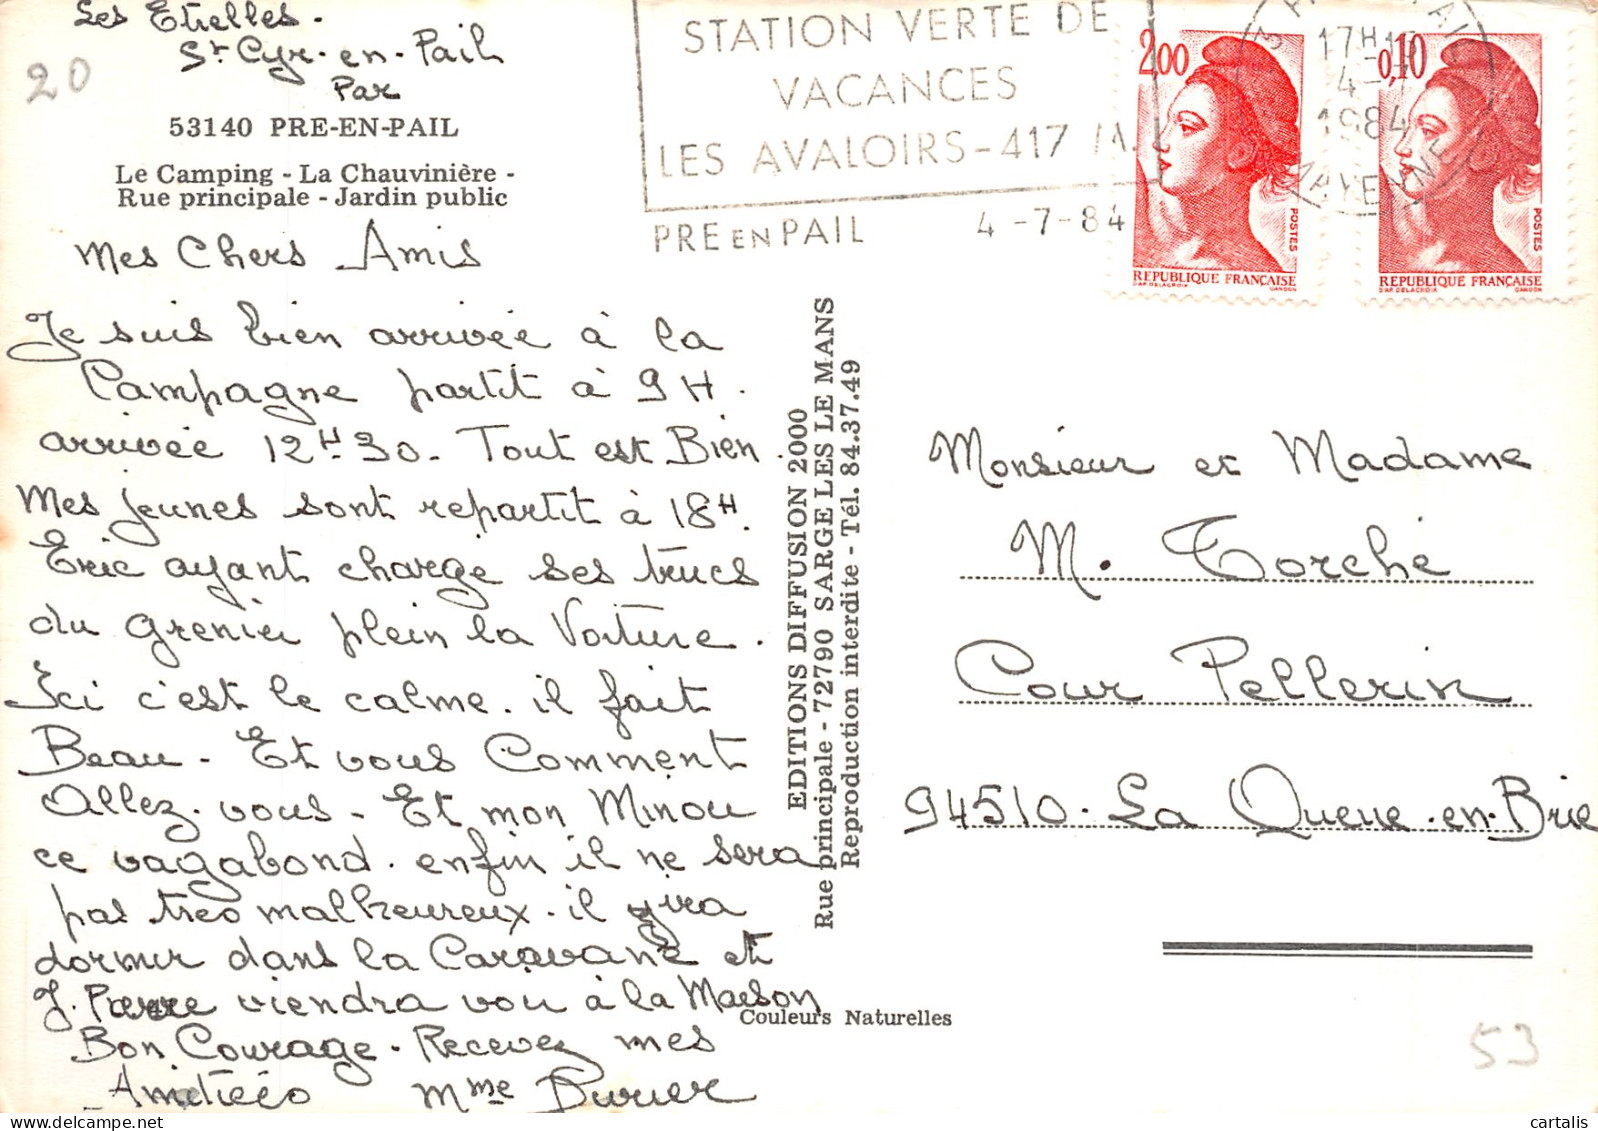 Les Etielles.
St Cyr-en-Pail
Par
20
53140 PRE-EN-PAIL
Le Camping - La Chauvinière -
Rue principale - Jardin public
Mes Chers Amis
Je suis bien arrivée à la
Campagne partit à 9H.
arrivée 12H30. Tout est Bien.
Mes jeunes sont repartit à 18H.
Eric ayant chargé ses trucs
du grenier plein la Voiture.
Ici c'est le calme. il fait
Beau. Et vous Comment
Allez-vous. Et mon Minou
ce vagabond. enfin il ne sera
pas tres malheureux. il ira
dormir dans la Caravane et
J. Pierre viendra voir à la Maison
Bon Courage. Recevez mes
Amitiées Mme
STATION VERTE DE
VACANCES
LES AVALOIRS-417 M.
PRE EN PAIL 4-7-84
17H15
4-7
1984
MAYENNE
2,00
POSTES
REPUBLIQUE FRANÇAISE
D'AP. DELACROIX GANDON
0,10
POSTES
REPUBLIQUE FRANÇAISE
D'AP. DELACROIX GANDON
EDITIONS DIFFUSION 2000
Rue principale - 72790 SARGE LES LE MANS
Reproduction interdite - Tél. 84.37.49
Couleurs Naturelles
Monsieur et Madame
M. Torché
Cour Pellerin
94510. La Queue-en-Brie
53
cartalis